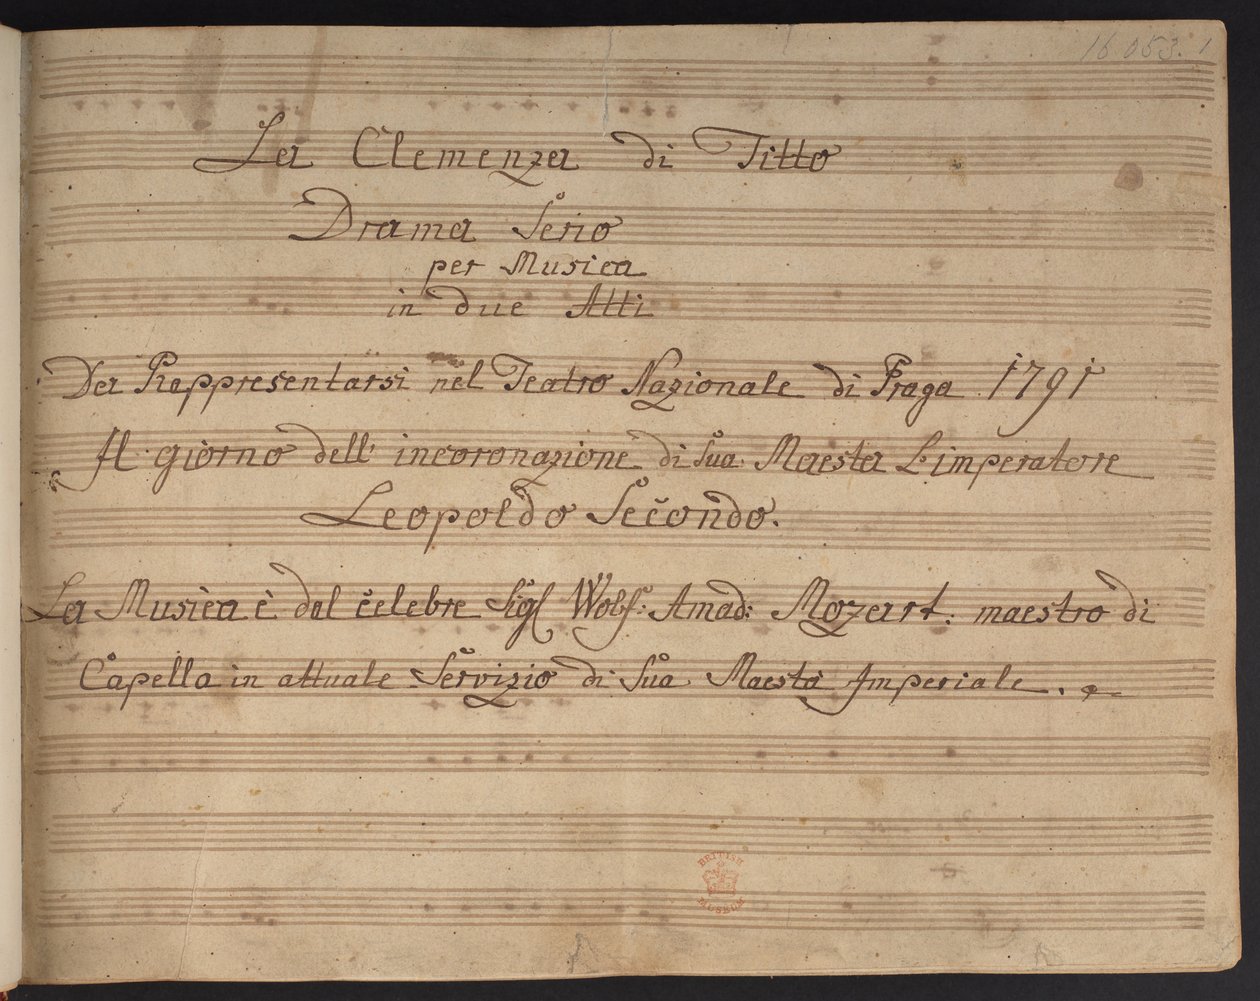 16.053. 1
La Clemenza di Titto
Drama Serio
per Musica
in due Atti
Da Rappresentarsi nel Teatro Nazionale di Praga 1791
Il giorno dell' incoronazione di Sua Maesta L'imperatore
Leopoldo Secondo.
La Musica è dal celebre Sigl Wolf: Amad: Mozart. maestro di
Capella in attuale Servizio di Sua Maestà Imperiale.
BRITISH
MUSEUM